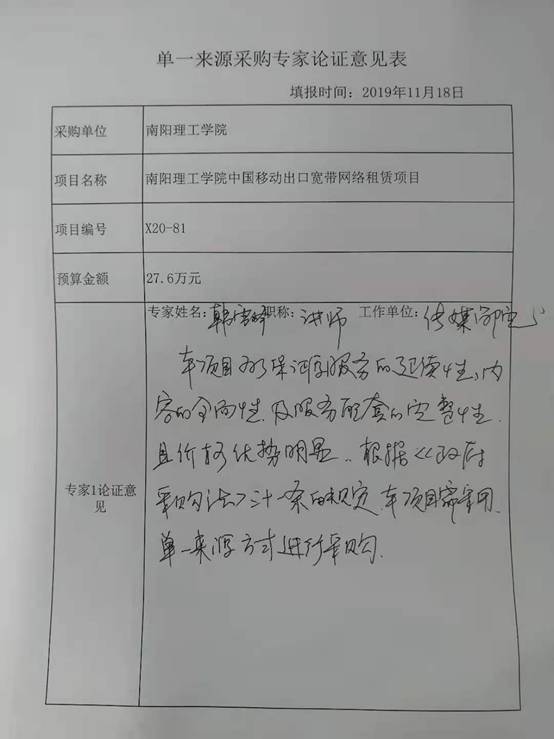 单一来源采购专家论证意见表
填报时间：2019年11月18日
采购单位 南阳理工学院
项目名称 南阳理工学院中国移动出口宽带网络租赁项目
项目编号 X20-81
预算金额 27.6万元
专家姓名：韩 职称：讲师 工作单位：传媒
本项目为了保证原服务的延续性、内
容的全面性及服务配套的完整性，
且价格优势明显。根据《政府
采购法》三十一条的规定，本项目需采用
单一来源方式进行采购.
专家1论证意
见